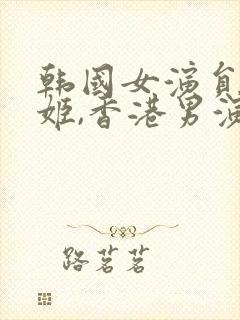 韩国女演员
姬,香港男演
路茗茗